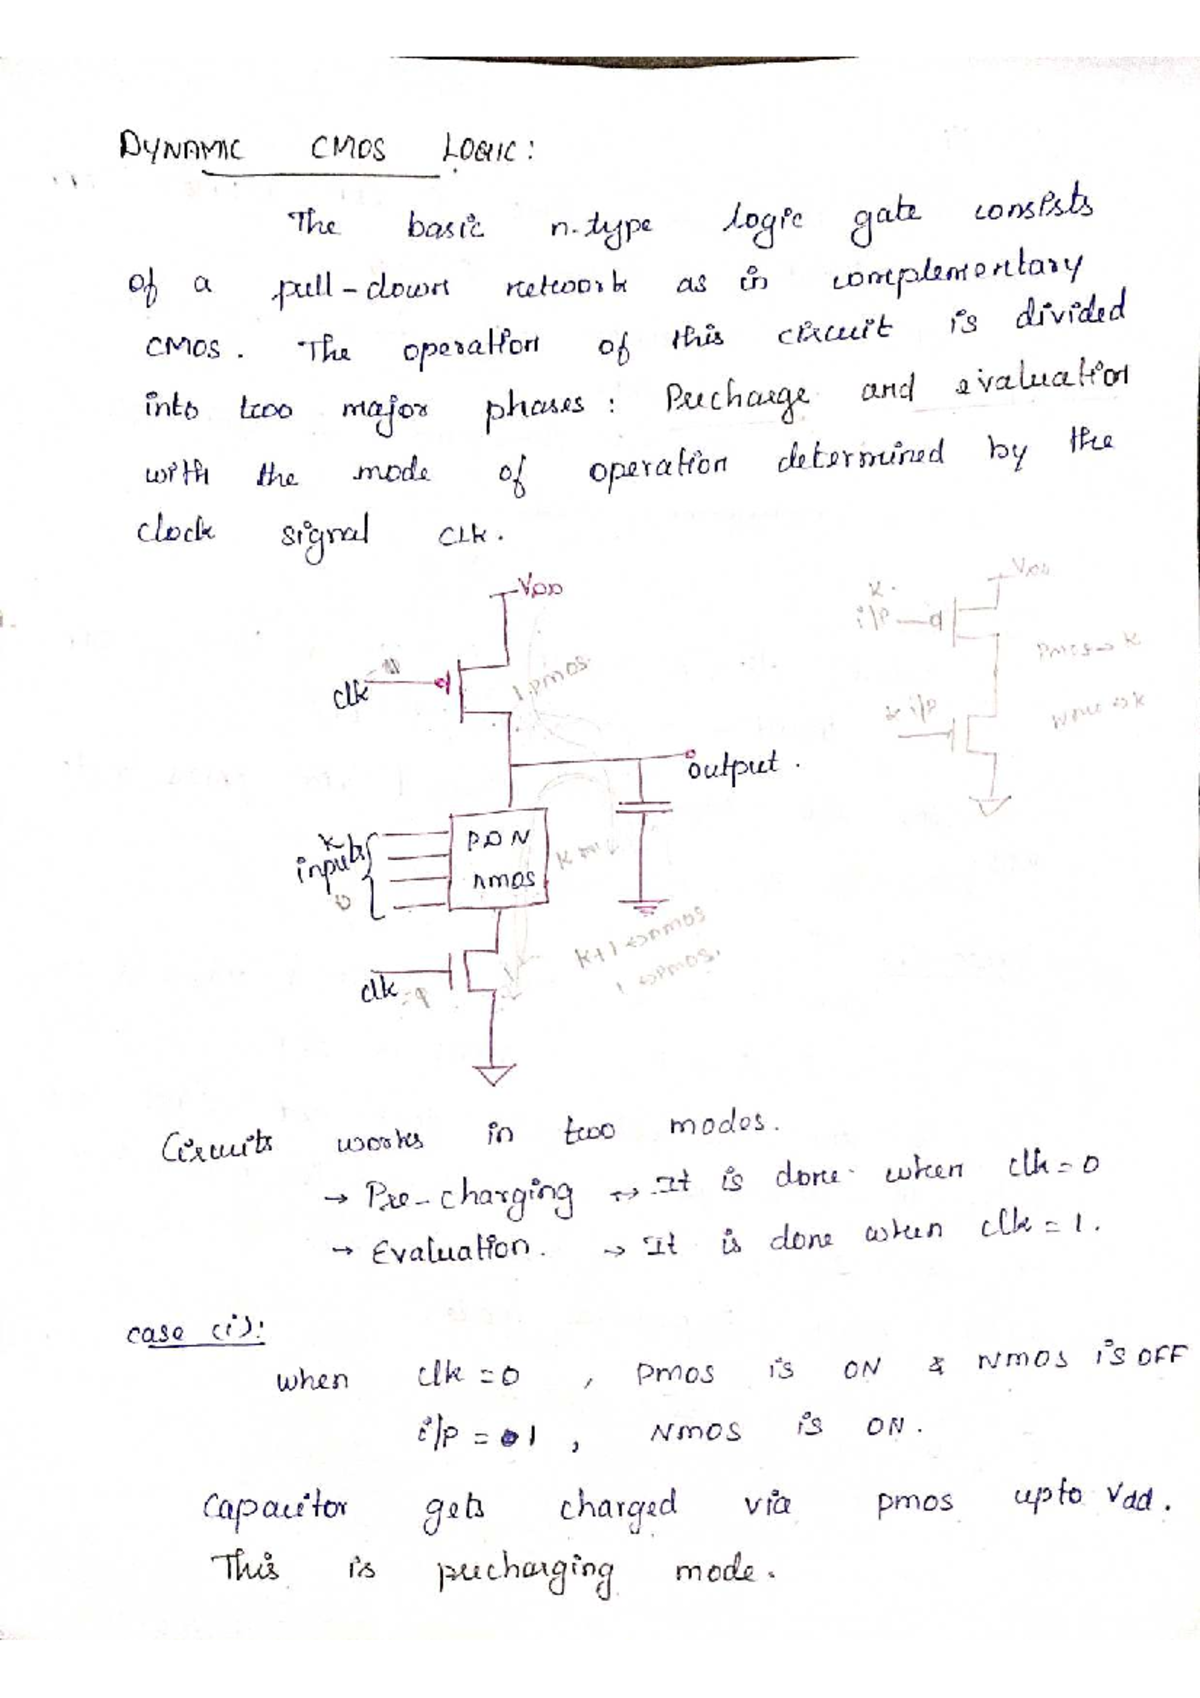 DYNAMIC CMOS LOGIC:
The basic n-type logic gate consists
of a pull-down network as in complementary
CMOS. The operation of this circuit is divided
into two major phases: Precharge and evaluation
with the mode of operation determined by the
clock signal CLK.
VDD
clk
1 pmos
output.
k
inputs
PDN
nmos
k+1 ↔ nmos
1 ↔ pmos.
clk
VDD
k
i/p
Pmos → k
k i/p
Circuits works in two modes.
→ Pre-charging ↔ It is done when clk = 0
→ Evaluation. → It is done when clk = 1.
case (i):
when clk = 0, pmos is ON & Nmos is OFF
i/p = 1, Nmos is ON.
Capacitor gets charged via pmos upto Vdd.
This is precharging mode.